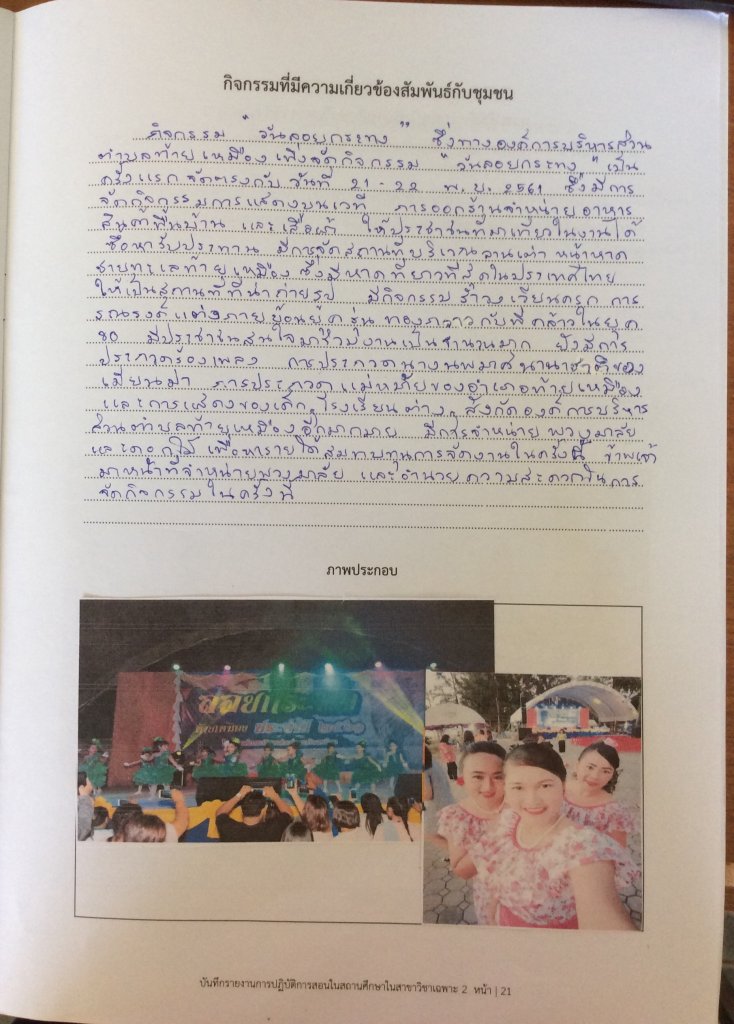 กิจกรรมที่มีความเกี่ยวข้องสัมพันธ์กับชุมชน
กิจกรรม " วันลอยกระทง " ซึ่งทางองค์การบริหารส่วน
ตำบลท้ายเหมืองเพิ่งจัดกิจกรรม " วันลอยกระทง " เป็น
ครั้งแรก จัดตรงกับ วันที่ 21 - 22 พ.ย. 2561 ซึ่งมีการ
จัดกิจกรรมการแสดงบนเวที การออกร้านจำหน่ายอาหาร
สินค้าพื้นบ้าน และเสื้อผ้า ให้ประชาชนที่มาเที่ยวในงานได้
ซื้อหารับประทาน มีการจัดสถานที่บริเวณลานเต่า หน้าหาด
ชายทะเลท้ายเหมือง ซึ่งมีหาดที่ยาวที่สุดในประเทศไทย
ให้เป็นสถานที่ที่น่าถ่ายรูป มีกิจกรรมรำวงเวียนครก การ
รณรงค์แต่งกายย้อนยุค รุ่น ทองกวาว กับพี่คล้าวในยุค
80 มีประชาชนสนใจมาร่วมงานเป็นจำนวนมาก ยังมีการ
ประกวดร้องเพลง การประกวดนางนพมาศนานาชาติของ
เมียนม่า การประกวดแม่หม้ายของอำเภอท้ายเหมือง
และการแสดงของเด็ก ๆ โรงเรียนต่าง ๆ สังกัดองค์การบริหาร
ส่วนตำบลท้ายเหมืองอีกมากมาย มีการจำหน่าย พวงมาลัย
และดอกไม้ เพื่อหารายได้สมทบทุนการจัดงานในครั้งนี้ ข้าพเจ้า
มาหน้าที่จำหน่ายพวงมาลัย และอำนวยความสะดวกในการ
จัดกิจกรรมในครั้งนี้
ภาพประกอบ
ลอยกระทง
ประจำปี ๒๕๖๑
บันทึกรายงานการปฏิบัติการสอนในสถานศึกษาในสาขาวิชาเฉพาะ 2 หน้า | 21